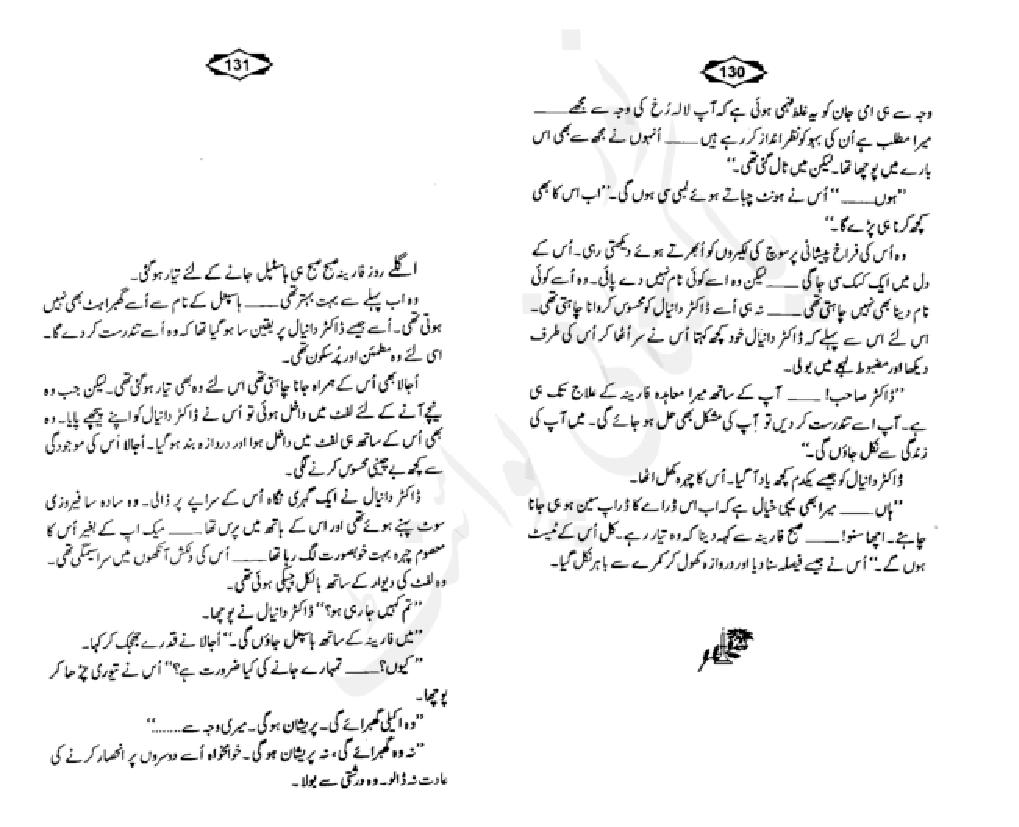 130
وجہ سے ہی امی جان کو یہ غلط فہمی ہوئی ہے کہ آپ لالہ رُخ کی وجہ سے مجھے ____
میرا مطلب ہے اُن کی بہو کو نظر انداز کر رہے ہیں ____ اُنہوں نے مجھ سے بھی اس
بارے میں پوچھا تھا۔ لیکن میں ٹال گئی تھی۔‘‘
’’ہوں ____‘‘ اُس نے ہونٹ چباتے ہوئے لمبی سی ہوں کی۔ ’’اب اس کا بھی
کچھ کرنا ہی پڑے گا۔‘‘
وہ اُس کی فراخ پیشانی پر سوچ کی لکیروں کو اُبھرتے ہوئے دیکھتی رہی۔ اُس کے
دل میں ایک کسک سی جاگی ____ لیکن وہ اسے کوئی نام نہیں دے پائی۔ وہ اسے کوئی
نام دینا بھی نہیں چاہتی تھی ____ نہ ہی اُسے ڈاکٹر دانیال کو محسوس کروانا چاہتی تھی۔
اس لئے اس سے پہلے کہ ڈاکٹر دانیال خود کچھ کہتا اُس نے سر اُٹھا کر اُس کی طرف
دیکھا اور مضبوط لہجے میں بولی۔
’’ڈاکٹر صاحب! ____ آپ کے ساتھ میرا معاہدہ فارینہ کے علاج تک ہی
ہے۔ آپ اسے تندرست کر دیں تو آپ کی مشکل بھی حل ہو جائے گی۔ میں آپ کی
زندگی سے نکل جاؤں گی۔‘‘
ڈاکٹر دانیال کو جیسے یکدم کچھ یاد آ گیا۔ اُس کا چہرہ کھل اٹھا۔
’’ہاں ____ میرا بھی یہی خیال ہے کہ اب اس ڈرامے کا ڈراپ سین ہو ہی جانا
چاہئے۔ اچھا سنو! ____ صبح فارینہ سے کہہ دینا کہ وہ تیار رہے۔ کل اُس کے ٹیسٹ
ہوں گے۔‘‘ اُس نے جیسے فیصلہ سنا دیا اور دروازہ کھول کر کمرے سے باہر نکل گیا۔
131
اگلے روز فارینہ صبح صبح ہی ہاسپٹل جانے کے لئے تیار ہو گئی۔
وہ اب پہلے سے بہت بہتر تھی ____ ہاسپٹل کے نام سے اُسے گھبراہٹ بھی نہیں
ہوتی تھی۔ اُسے جیسے ڈاکٹر دانیال پر یقین سا ہو گیا تھا کہ وہ اُسے تندرست کر دے گا۔
اسی لئے وہ مطمئن اور پُر سکون تھی۔
اُجالا بھی اُس کے ہمراہ جانا چاہتی تھی اس لئے وہ بھی تیار ہو گئی تھی۔ لیکن جب وہ
نیچے آنے کے لئے لفٹ میں داخل ہوئی تو اُس نے ڈاکٹر دانیال کو اپنے پیچھے پایا۔ وہ
بھی اُس کے ساتھ ہی لفٹ میں داخل ہوا اور دروازہ بند ہو گیا۔ اُجالا اُس کی موجودگی
سے کچھ بے چینی محسوس کرنے لگی۔
ڈاکٹر دانیال نے ایک گہری نگاہ اُس کے سراپے پر ڈالی۔ وہ سادہ سا فیروزی
سوٹ پہنے ہوئے تھی اور اس کے ہاتھ میں پرس تھا ____ میک اپ کے بغیر اُس کا
معصوم چہرہ بہت خوبصورت لگ رہا تھا ____ اُس کی دلکش آنکھوں میں سراسیمگی تھی۔
وہ لفٹ کی دیوار کے ساتھ بالکل چپکی ہوئی تھی۔
’’تم کہیں جا رہی ہو؟‘‘ ڈاکٹر دانیال نے پوچھا۔
’’میں فارینہ کے ساتھ ہاسپٹل جاؤں گی۔‘‘ اُجالا نے قدرے جھجک کر کہا۔
’’کیوں؟ ____ تمہارے جانے کی کیا ضرورت ہے؟‘‘ اُس نے تیوری چڑھا کر
پوچھا۔
’’وہ اکیلی گھبرائے گی۔ پریشان ہو گی۔ میری وجہ سے........‘‘
’’نہ وہ گھبرائے گی، نہ پریشان ہو گی۔ خوامخواہ اُسے دوسروں پر انحصار کرنے کی
عادت نہ ڈالو۔ وہ درشتی سے بولا۔